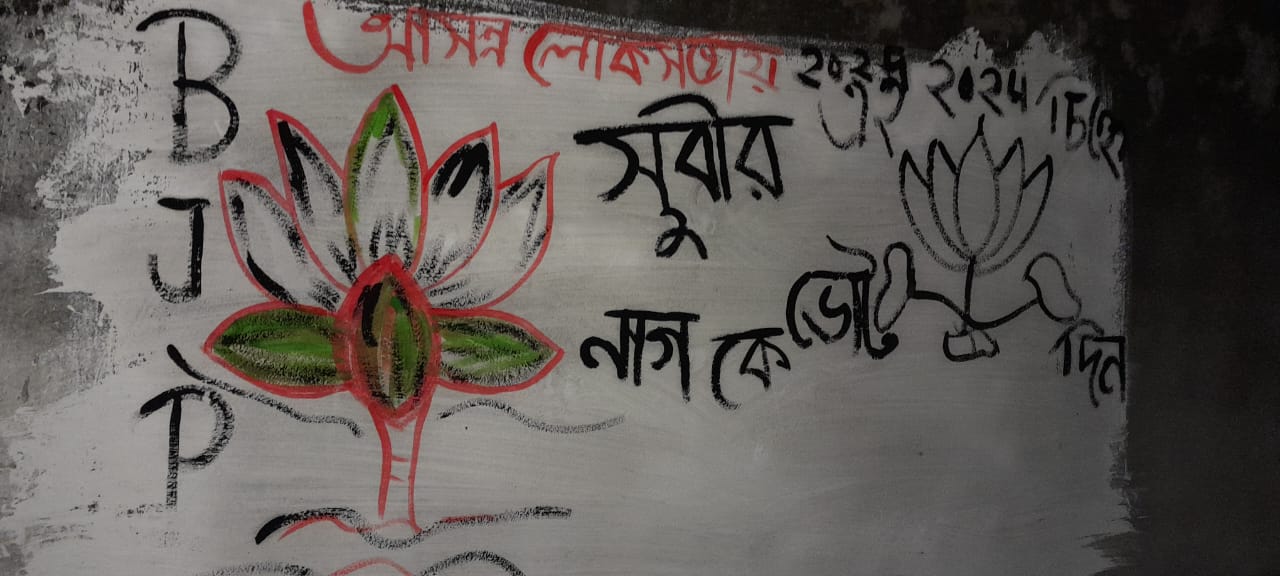 BJP
আসন্ন লোকসভায় ২০২৪ ২০২৪ চিহ্নে
সুবীর
নাগ কে ভোট দিন